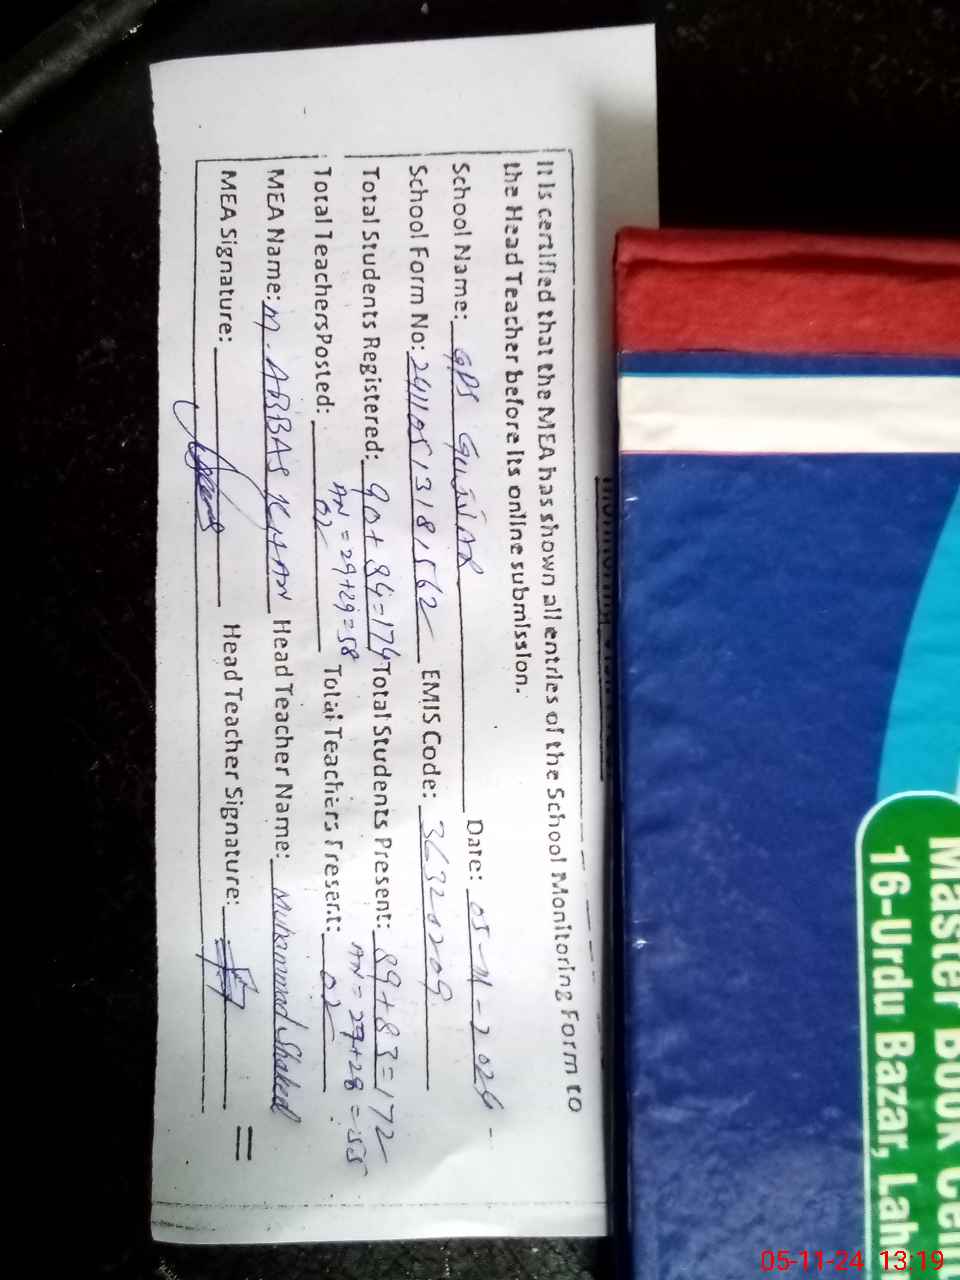 It is certified that the MEA has shown all entries of the School Monitoring Form to
the Head Teacher before its online submission.
School Name: GPS Date: 05-11-2024
School Form No: 24110513181562 EMIS Code: 36320209
Total Students Registered: 90+84=174 Total Students Present: 89+83=172
AN = 29+29=58 AN = 27+28=55
Total Teachers Posted: 02 Total Teachers Present: 02
MEA Name: M. ABBAS KHAN Head Teacher Name: Muhammad Shakeel
MEA Signature: Head Teacher Signature:
Master Book
16-Urdu Bazar, Lah
05-11-24 13:19